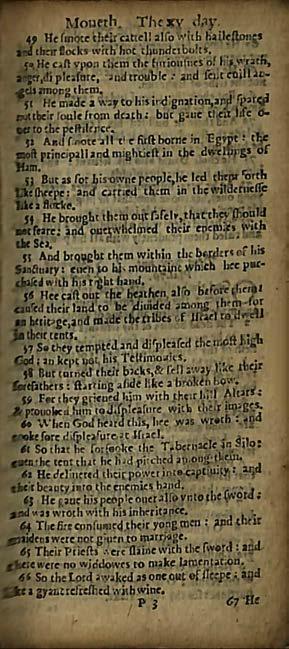 Moneth. The xv day.
49 He smote their cattell also with hailestones
and their flocks with hot thunderbolts.
50 He cast vpon them the furiousnes of his wrath,
anger, displeasure, and trouble: and sent euill an-
gels among them.
51 He made a way to his indignation, and spared
not their soule from death: but gaue their life o-
uer to the pestilence.
52 And smote all the first borne in Egypt: the
most principall and mightiest in the dwellings of
Ham.
53 But as for his owne people, he led them forth
like sheepe: and carried them in the wildernesse
like a flocke.
54 He brought them out safely, that they should
not feare: and ouerwhelmed their enemies with
the Sea.
55 And brought them within the borders of his
Sanctuary: euen to his mountaine which hee pur-
chased with his right hand.
56 Hee cast out the heathen also before them:
caused their land to be diuided among them for
an heritage, and made the tribes of Israel to dwell
in their tents.
57 So they tempted and displeased the most high
God: an kept not his Testimonies.
58 But turned their backs, & fell away like their
forefathers: starting aside like a broken bow.
59 For they grieued him with their hill Altars:
& prouoked him to displeasure with their images.
60 When God heard this, hee was wroth: and
tooke sore displeasure at Israel.
61 So that he forsooke the Tabernacle in Silo:
euen the tent that he had pitched among them.
62 He deliuered their power into captiuity: and
their beauty into the enemies hand.
63 He gaue his people ouer also vnto the sword:
and was wroth with his inheritance.
64 The fire consumed their yong men: and their
maidens were not giuen to marriage.
65 Their Priests were slaine with the sword: and
there were no widdowes to make lamentation.
66 So the Lord awaked as one out of sleepe: and
like a gyant refreshed with wine.
P 3 67 He